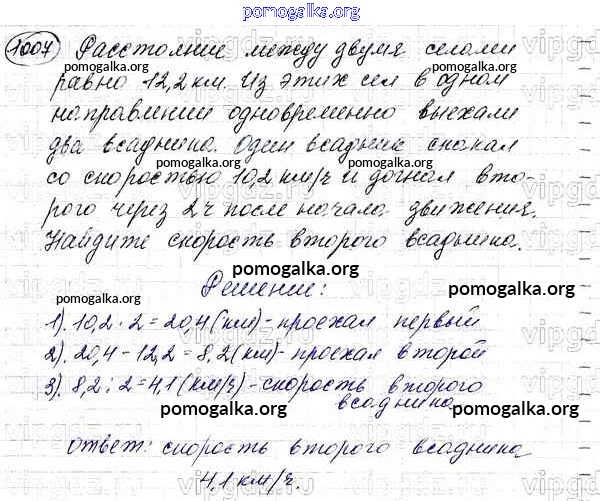 pomogalka.org
1007 Расстояние между двумя селами
pomogalka.org pomogalka.org
равно 12,2 км. Из этих сел в одном
направлении одновременно выехали
pomogalka.org
два всадника. Один всадник скакал
pomogalka.org
со скоростью 10,2 км/ч и догнал вто-
рого через 2 ч после начала движения.
pomogalka.org pomogalka.org
Найдите скорость второго всадника.
pomogalka.org
Решение:
pomogalka.org pomogalka.org
1). 10,2 · 2 = 20,4 (км) - проехал первый
2). 20,4 - 12,2 = 8,2 (км) - проехал второй
3). 8,2 : 2 = 4,1 (км/ч) - скорость второго
всадника
pomogalka.org pomogalka.org
ответ: скорость второго всадника
4,1 км/ч.
pomogalka.org pomogalka.org